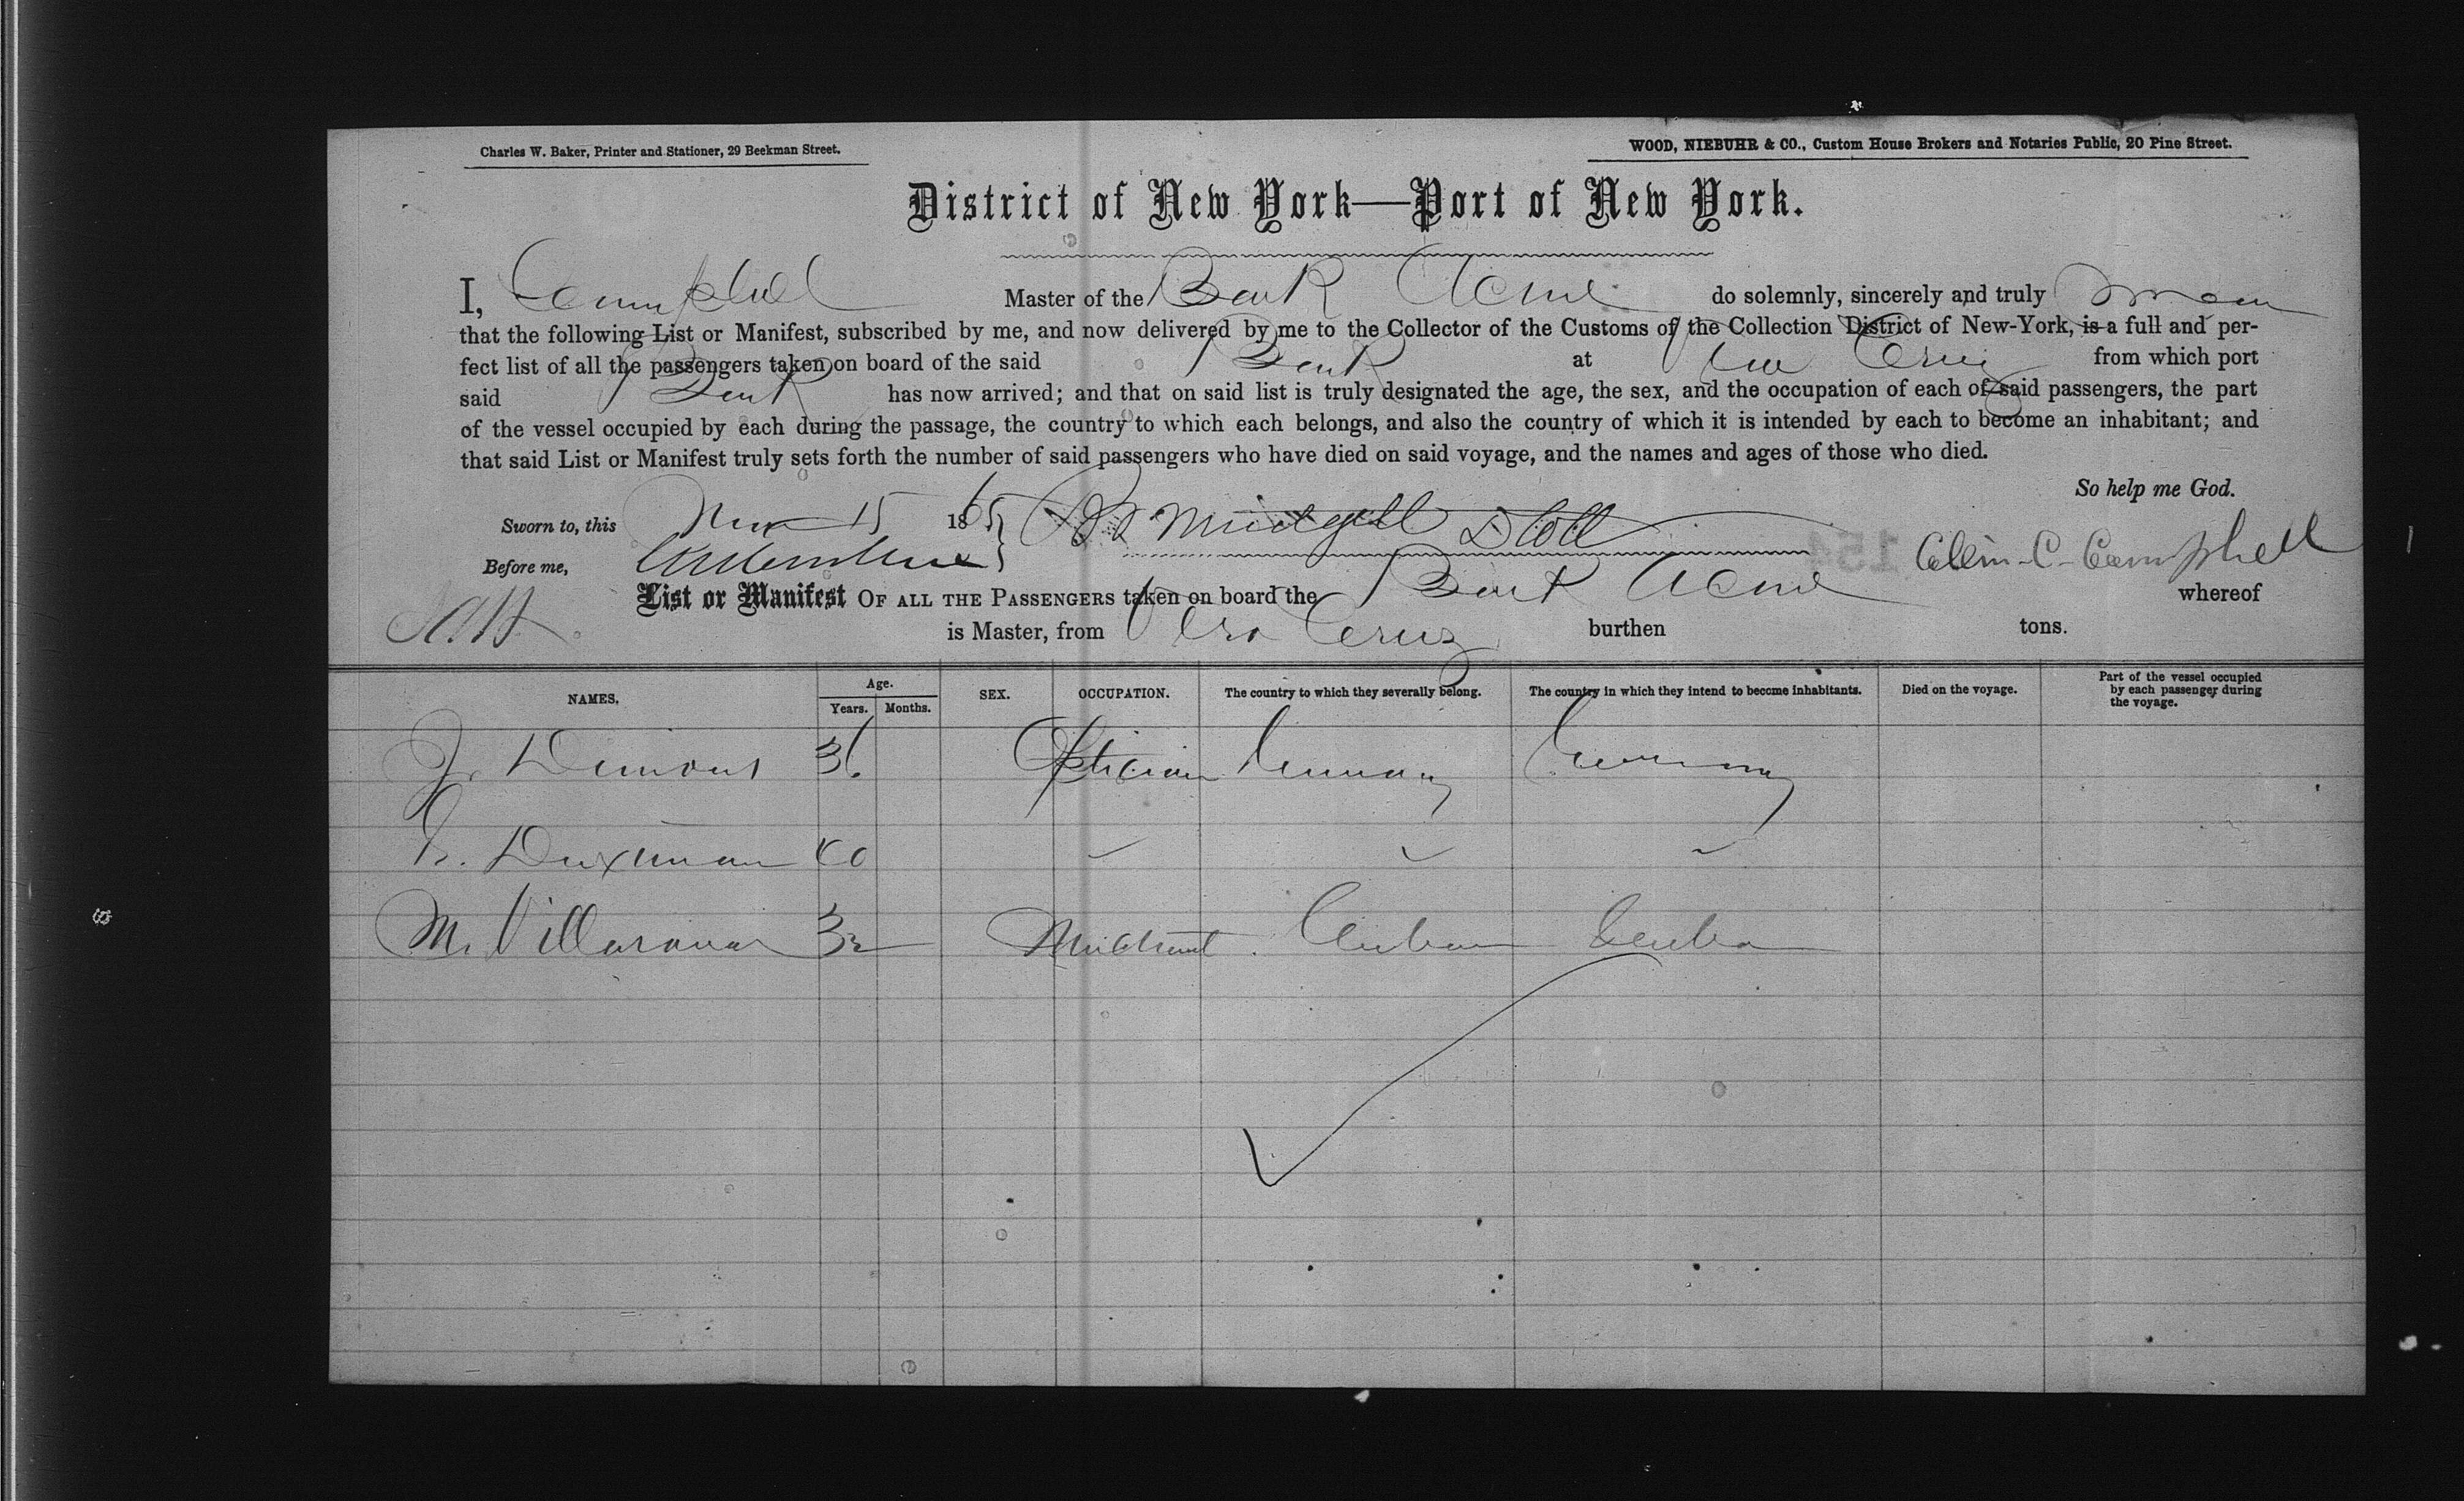 Charles W. Baker, Printer and Stationer, 29 Beekman Street.
WOOD, NIEBUHR & CO., Custom House Brokers and Notaries Public, 20 Pine Street.
District of New York—Port of New York.
I, Campbell Master of the Bark Acme do solemnly, sincerely and truly swear
that the following List or Manifest, subscribed by me, and now delivered by me to the Collector of the Customs of the Collection District of New-York, is a full and per-
fect list of all the passengers taken on board of the said Bark at Vera Cruz from which port
said Bark has now arrived; and that on said list is truly designated the age, the sex, and the occupation of each of said passengers, the part
of the vessel occupied by each during the passage, the country to which each belongs, and also the country of which it is intended by each to become an inhabitant; and
that said List or Manifest truly sets forth the number of said passengers who have died on said voyage, and the names and ages of those who died.
So help me God.
Sworn to, this 15 1865
Before me, C. Campbell
List or Manifest OF ALL THE PASSENGERS taken on board the Bark Acme whereof
is Master, from Vera Cruz burthen tons.
NAMES. Age. Years. Months. SEX. OCCUPATION. The country to which they severally belong. The country in which they intend to become inhabitants. Died on the voyage. Part of the vessel occupied by each passenger during the voyage.
36 Optician Germany Germany
40
M. Villanova 32 Merchant Cuba Cuba